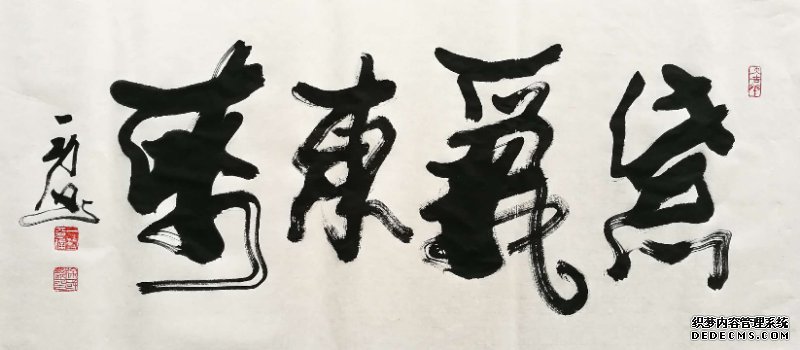 紫氣東來
织梦内容管理系统
DEDECMS.COM